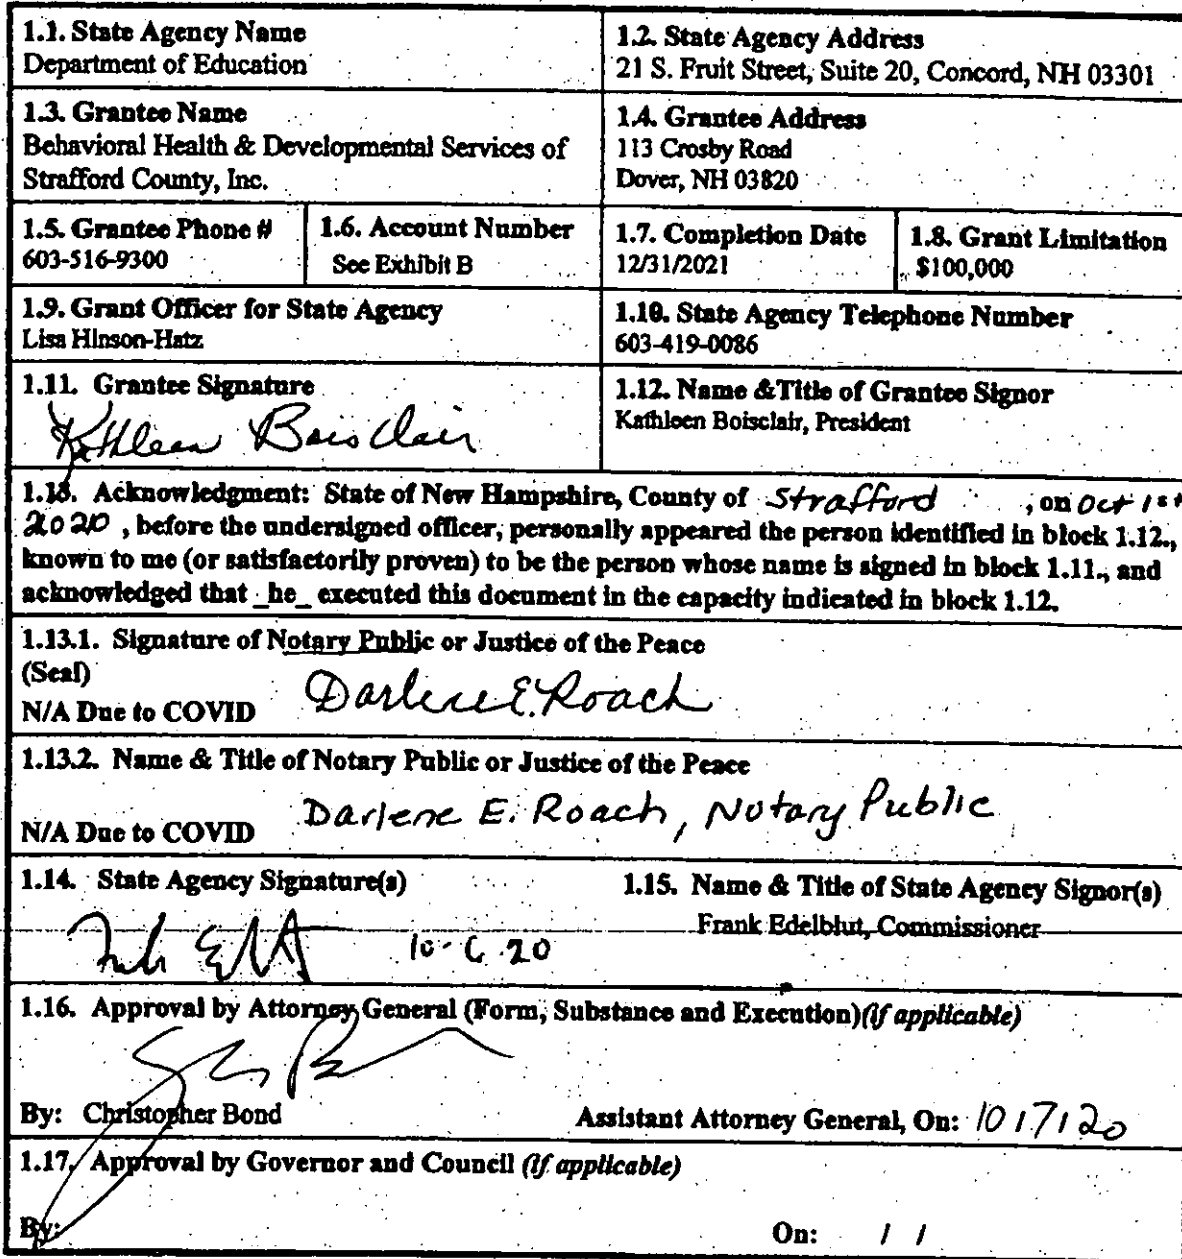 1.1. State Agency Name
Department of Education
1.2. State Agency Address
21 S. Fruit Street, Suite 20, Concord, NH 03301
1.3. Grantee Name
Behavioral Health & Developmental Services of
Strafford County, Inc.
1.4. Grantee Address
113 Crosby Road
Dover, NH 03820
1.5. Grantee Phone #
603-516-9300
1.6. Account Number
See Exhibit B
1.7. Completion Date
12/31/2021
1.8. Grant Limitation
$100,000
1.9. Grant Officer for State Agency
Lisa Hinson-Hatz
1.10. State Agency Telephone Number
603-419-0086
1.11. Grantee Signature
Kathleen Boisclair
1.12. Name & Title of Grantee Signor
Kathleen Boisclair, President
1.13. Acknowledgment: State of New Hampshire, County of Strafford , on Oct 1st
2020 , before the undersigned officer, personally appeared the person identified in block 1.12.,
known to me (or satisfactorily proven) to be the person whose name is signed in block 1.11., and
acknowledged that _he_ executed this document in the capacity indicated in block 1.12.
1.13.1. Signature of Notary Public or Justice of the Peace
(Seal)
N/A Due to COVID Darlene E. Roach
1.13.2. Name & Title of Notary Public or Justice of the Peace
N/A Due to COVID Darlene E. Roach, Notary Public
1.14. State Agency Signature(s)
10-6-20
1.15. Name & Title of State Agency Signor(s)
Frank Edelblut, Commissioner
1.16. Approval by Attorney General (Form, Substance and Execution)(if applicable)
By: Christopher Bond Assistant Attorney General, On: 10/7/20
1.17. Approval by Governor and Council (if applicable)
By: On: / /